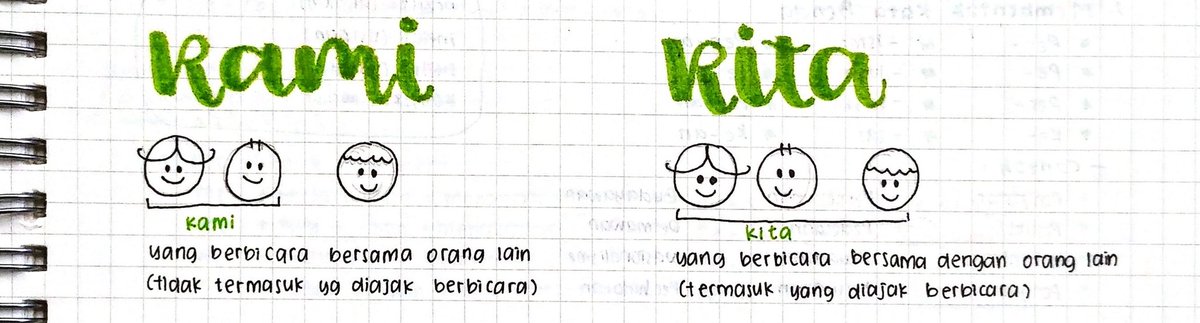 kami
kita
kami
yang berbicara bersama orang lain
(tidak termasuk yg diajak berbicara)
kita
yang berbicara bersama dengan orang lain
(termasuk yang diajak berbicara)